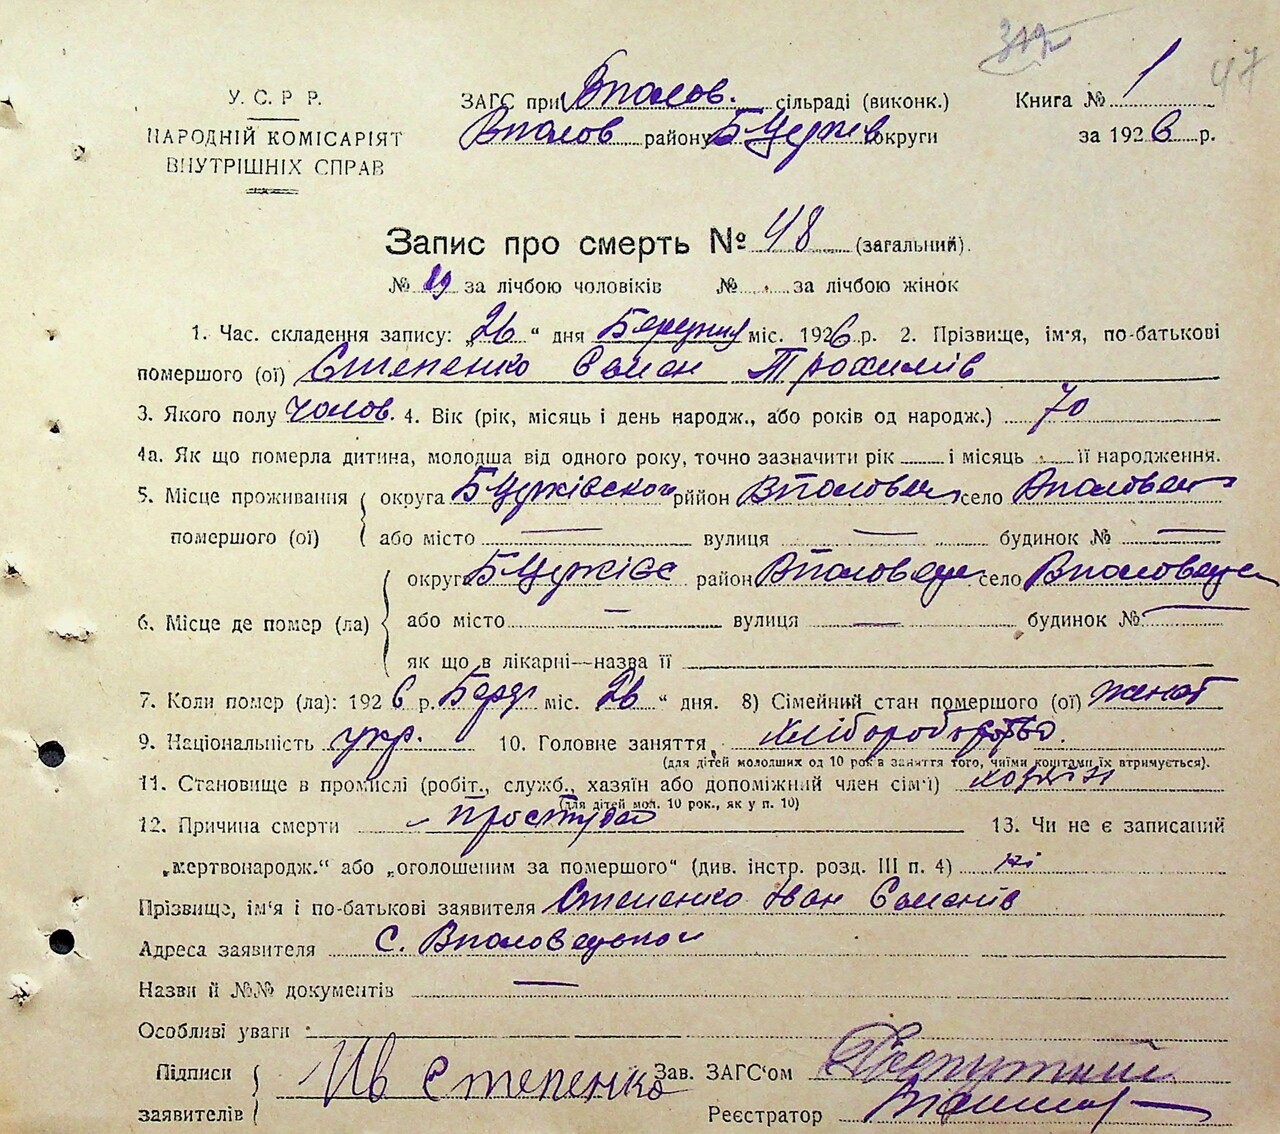 47
У. С. Р. Р.
НАРОДНІЙ КОМІСАРІЯТ
ВНУТРІШНІХ СПРАВ
ЗАГС при Вполов. сільраді (виконк.)
Вполов району БЦеркв округи
Книга № 1
за 1926 р.
Запис про смерть № 48 (загальний).
№ 29 за лічбою чоловіків № за лічбою жінок
1. Час складення запису: „26“ дня Березня міс. 1926 р. 2. Прізвище, ім'я, по-батькові
помершого (ої) Степенко Семен Трохимів
3. Якого полу чолов. 4. Вік (рік, місяць і день народж., або років од народж.) 70
4а. Як що померла дитина, молодша від одного року, точно зазначити рік і місяць її народження.
5. Місце проживання округа БЦерківської район Вполовец село Вполовец
помершого (ої) або місто — вулиця — будинок № —
округа БЦерківс район Вполовецьк село Вполовецьк
6. Місце де помер (ла) або місто — вулиця — будинок № —
як що в лікарні—назва її
7. Коли помер (ла): 1926 р. Берез міс. 26 “ дня. 8) Сімейний стан помершого (ої) женат
9. Національність укр. 10. Головне заняття хліборобство.
(для дітей молодших од 10 рок в заняття того, чиїми коштами їх втримується).
11. Становище в промислі (робіт., служб., хазяїн або допоміжний член сім'ї) хазяїн
(для дітей мол. 10 рок., як у п. 10)
12. Причина смерти – простуда 13. Чи не є записаний
„мертвонародж.“ або „оголошеним за помершого“ (див. інстр. розд. III п. 4) ні
Прізвище, ім'я і по-батькові заявителя Степенко Іван Семенів
Адреса заявителя С. Вполовецької
Назви й №№ документів —
Особливі уваги
Підписи Ив Степенко Зав. ЗАГС'ом
заявителів Реєстратор